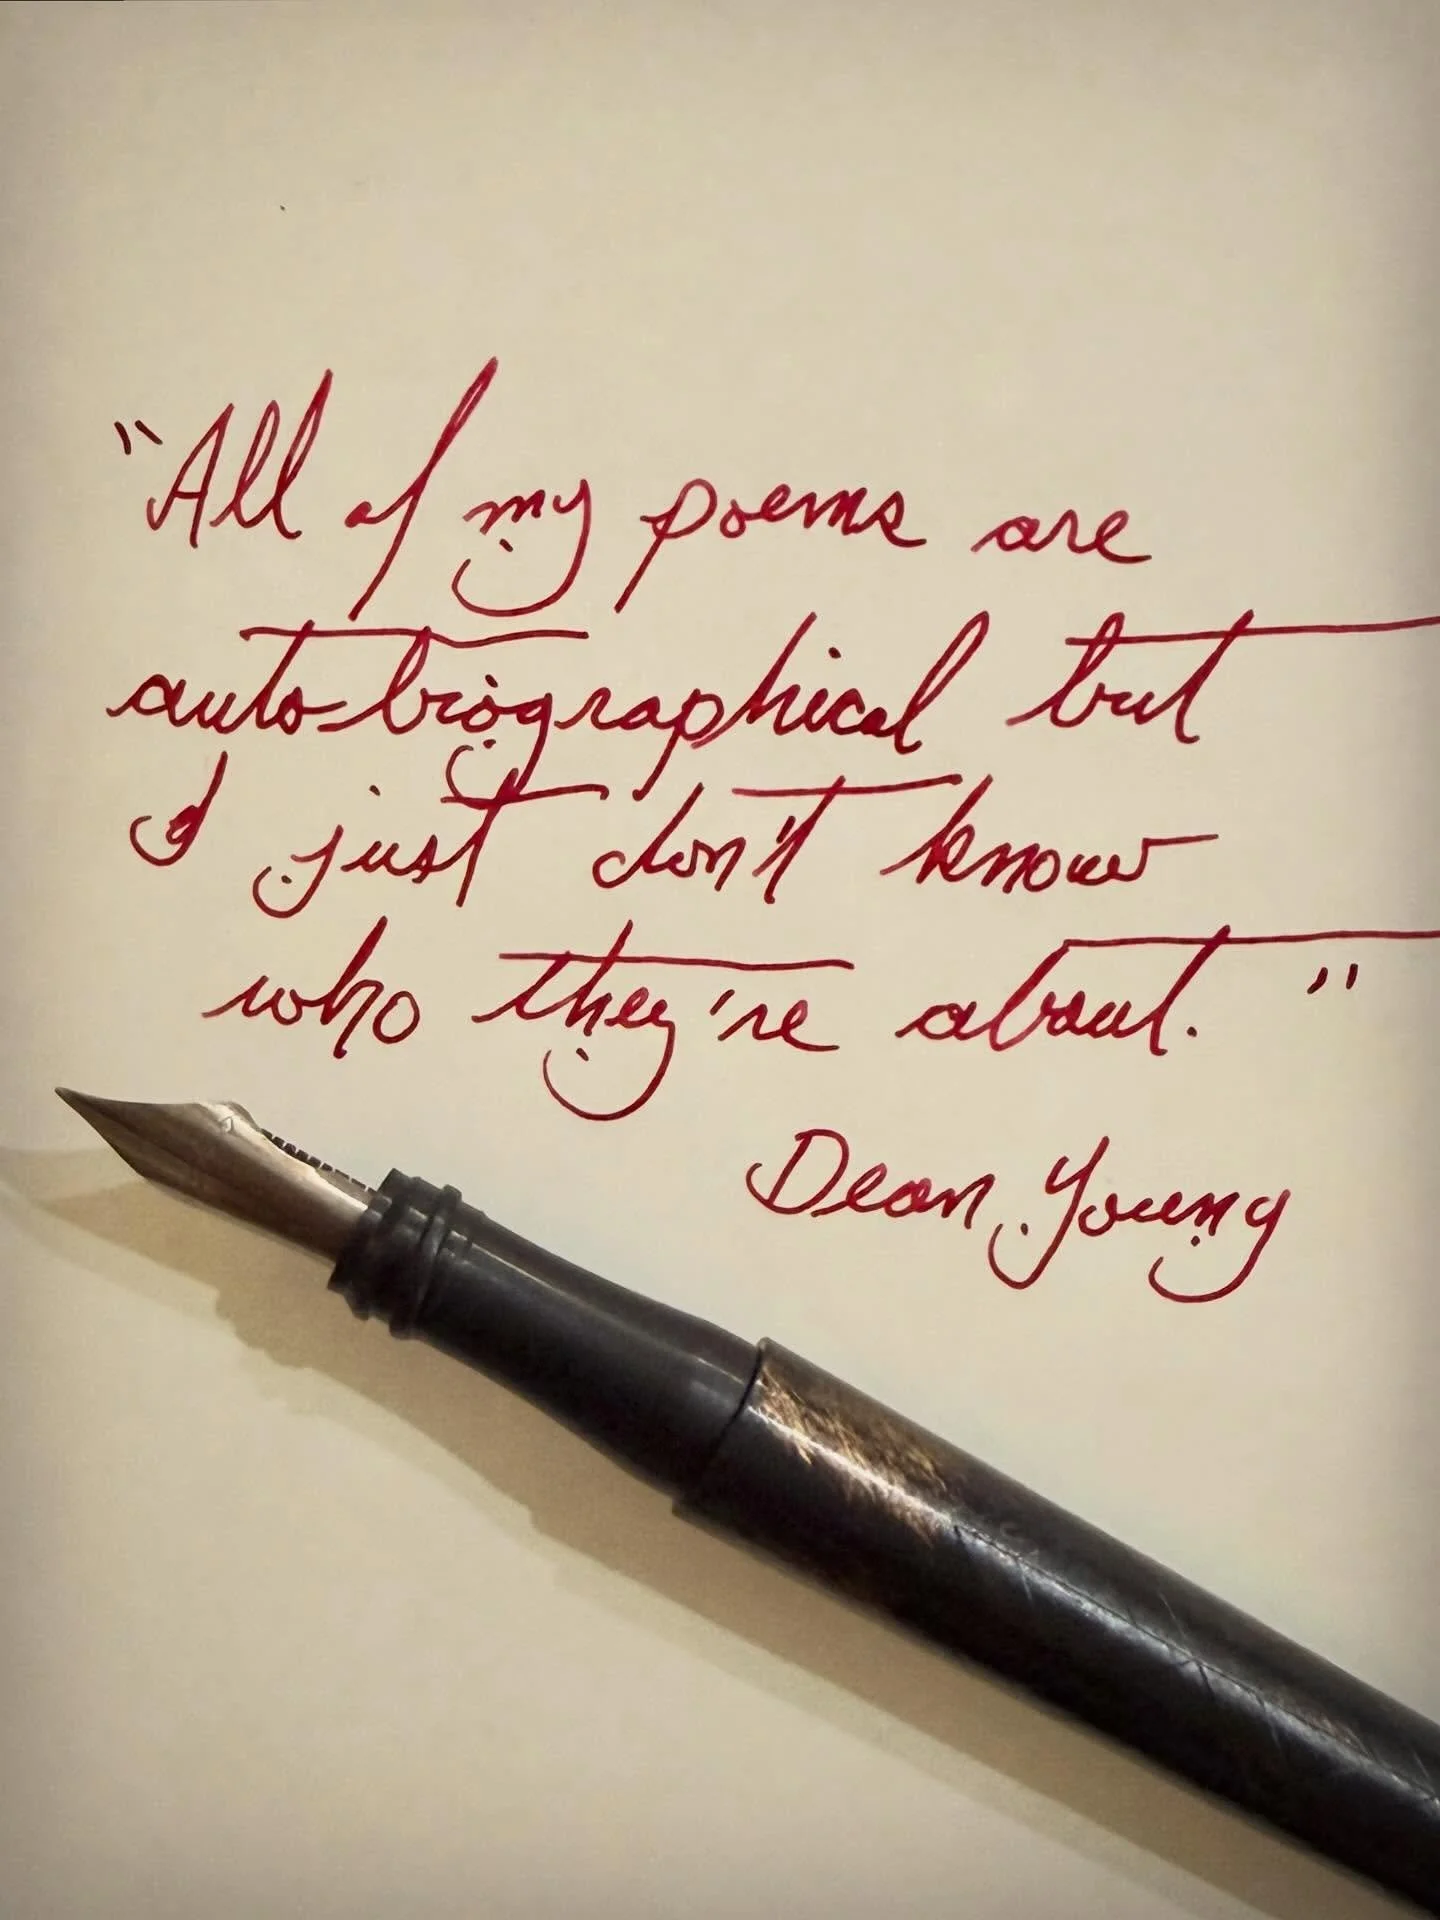 "All of my poems are
autobiographical but
I just don't know
who they're about."
Dean Young